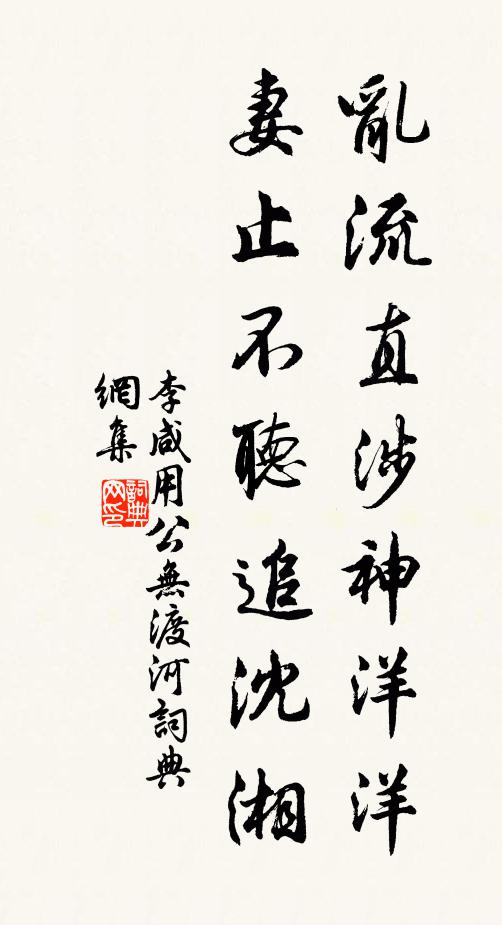 亂流直涉神洋洋
妻止不聽追沈湘
李咸用公無渡河詞典
網集
詞典網印